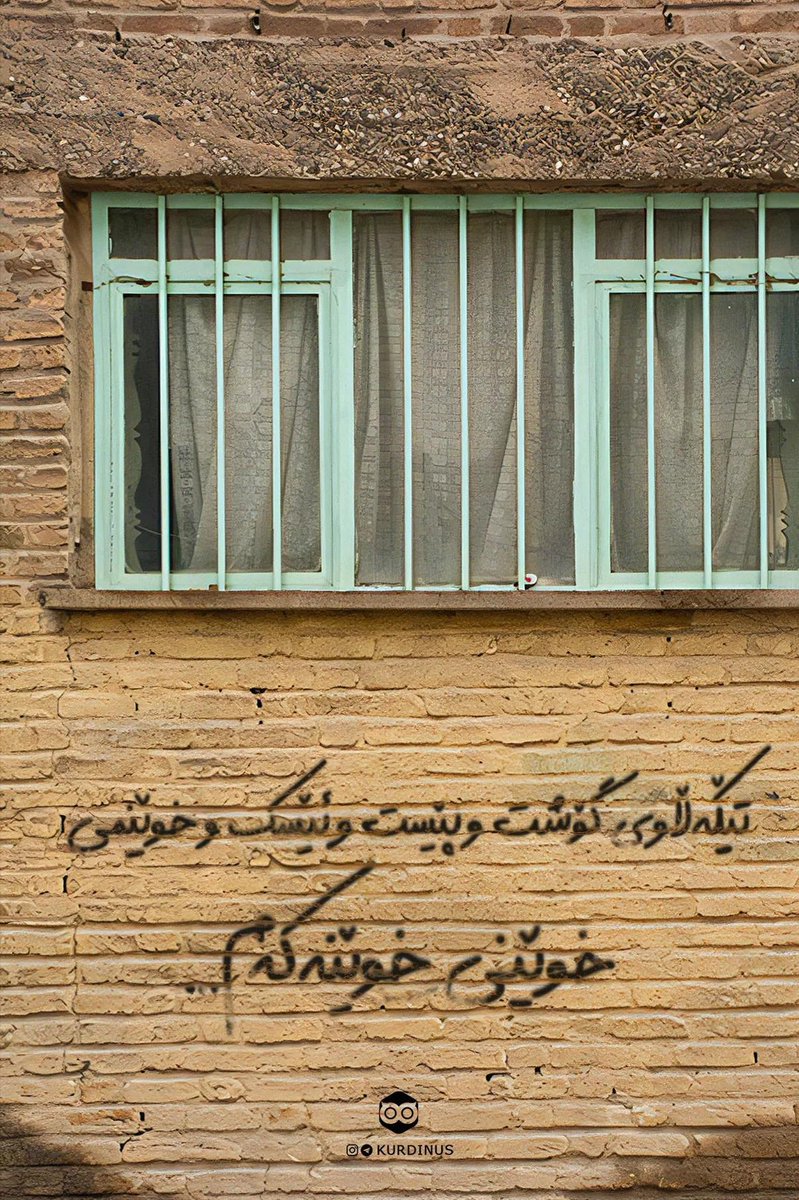 تێکەڵاوی گۆشت و پێست و ئێسک و خوێنمی
خوێنی خوێنەکەم...
KURDINUS